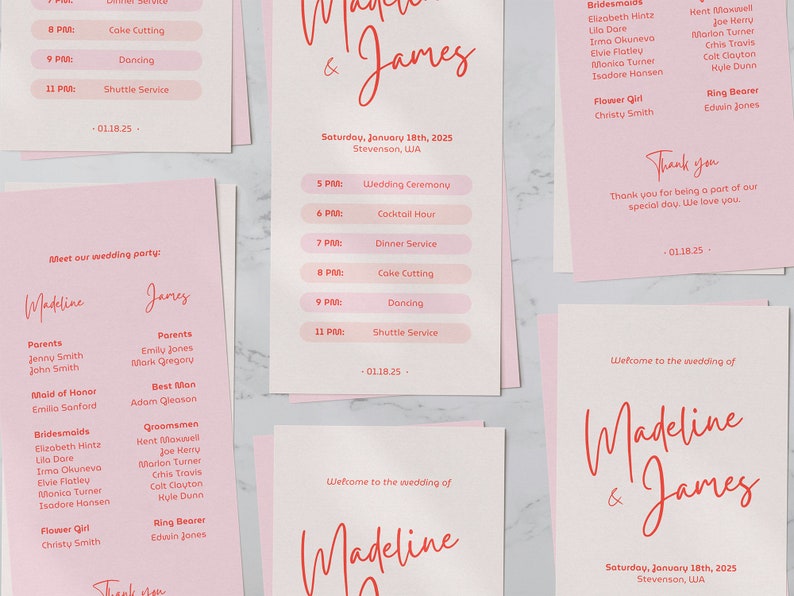 7 PM: Dinner Service
8 PM: Cake Cutting
9 PM: Dancing
11 PM: Shuttle Service
· 01.18.25 ·
Madeline
& James
Saturday, January 18th, 2025
Stevenson, WA
5 PM: Wedding Ceremony
6 PM: Cocktail Hour
7 PM: Dinner Service
8 PM: Cake Cutting
9 PM: Dancing
11 PM: Shuttle Service
· 01.18.25 ·
Bridesmaids
Elizabeth Hintz
Lila Dare
Irma Okuneva
Elvie Flatley
Monica Turner
Isadore Hansen
Flower Girl
Christy Smith
Kent Maxwell
Joe Kerry
Marlon Turner
Crhis Travis
Colt Clayton
Kyle Dunn
Ring Bearer
Edwin Jones
Thank you
Thank you for being a part of our
special day. We love you.
· 01.18.25 ·
Meet our wedding party:
Madeline
Parents
Jenny Smith
John Smith
Maid of Honor
Emilia Sanford
Bridesmaids
Elizabeth Hintz
Lila Dare
Irma Okuneva
Elvie Flatley
Monica Turner
Isadore Hansen
Flower Girl
Christy Smith
James
Parents
Emily Jones
Mark Gregory
Best Man
Adam Gleason
Groomsmen
Kent Maxwell
Joe Kerry
Marlon Turner
Crhis Travis
Colt Clayton
Kyle Dunn
Ring Bearer
Edwin Jones
Thank you
Welcome to the wedding of
Madeline
Welcome to the wedding of
Madeline
& James
Saturday, January 18th, 2025
Stevenson, WA